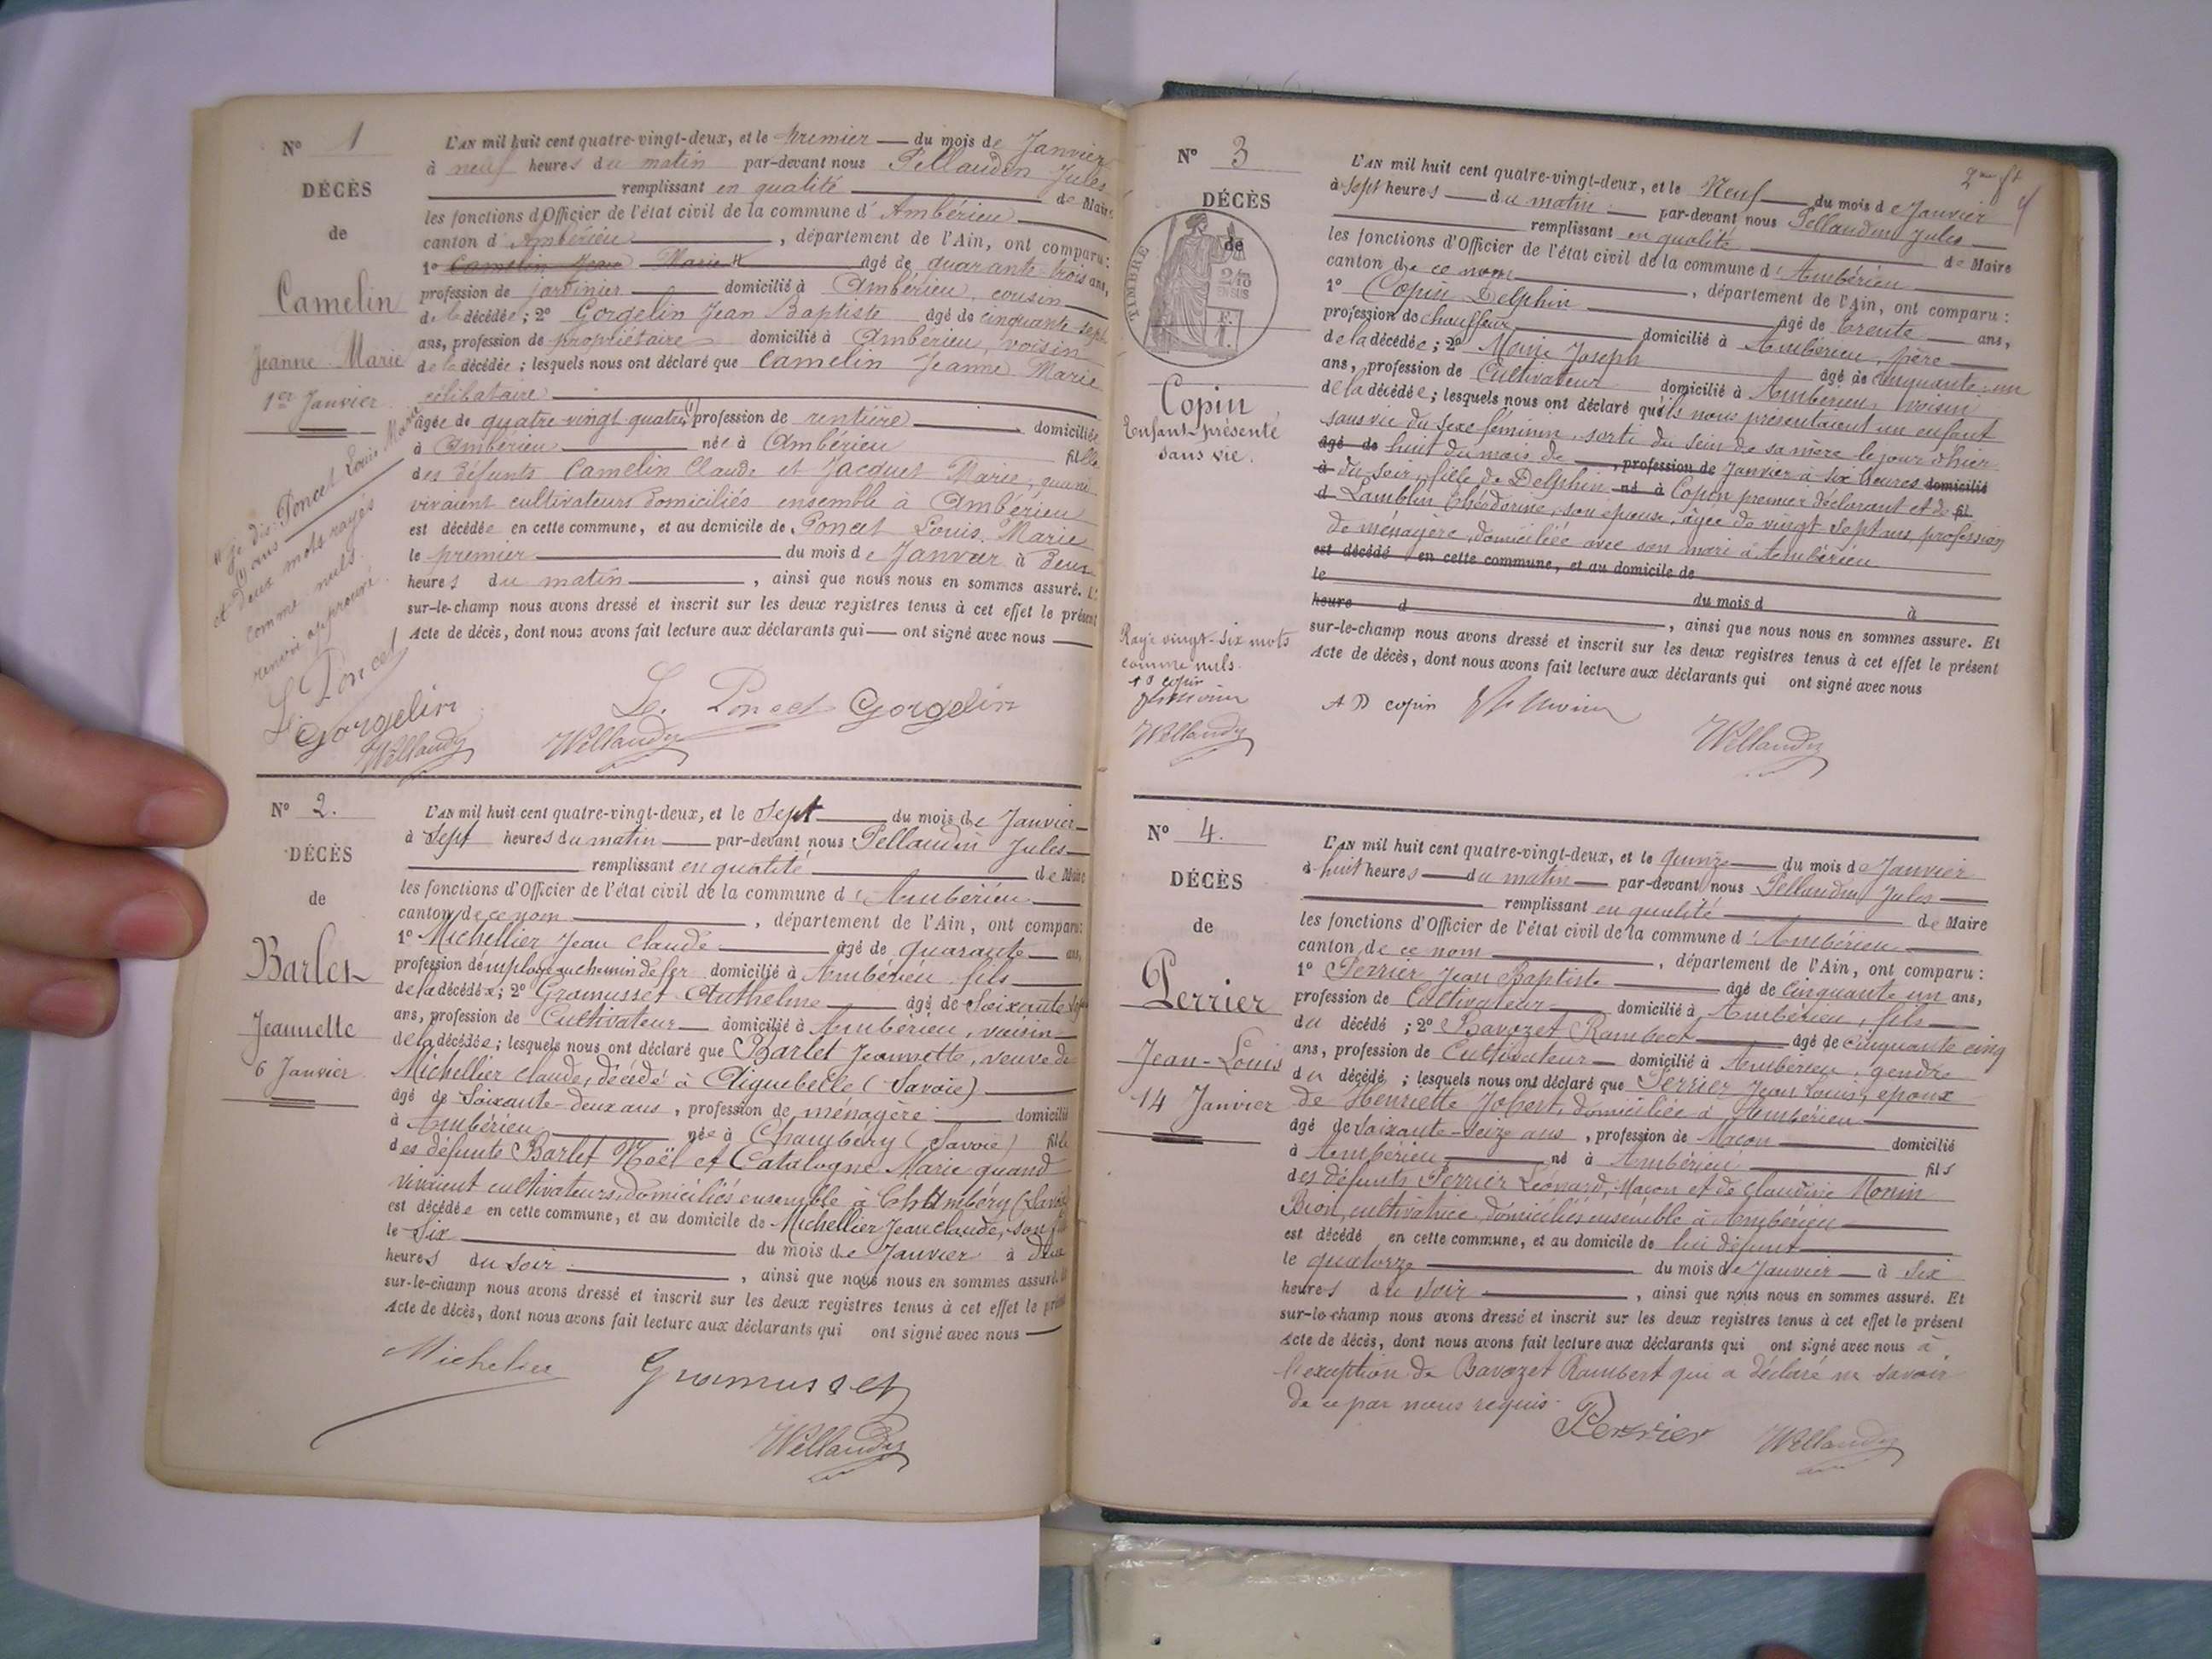 N° 1
DÉCÈS
de
Camelin
Jeanne Marie
1er Janvier
L'AN mil huit cent quatre-vingt-deux, et le premier du mois de Janvier
à neuf heures du matin par-devant nous Pellaudin Jules
remplissant en qualité de Maire
les fonctions d'Officier de l'état civil de la commune d'Ambérieu
canton d'Ambérieu, département de l'Ain, ont comparu:
1° Camelin Jean Marie # âgé de quarante-trois ans,
profession de jardinier domicilié à Ambérieu, cousin
de la décédée; 2° Gorgelin Jean Baptiste âgé de cinquante-sept
ans, profession de propriétaire domicilié à Ambérieu, voisin
de la décédée; lesquels nous ont déclaré que Camelin Jeanne Marie
célibataire
âgée de quatre-vingt quatre (1) profession de rentière domiciliée
à Ambérieu née à Ambérieu fille
des défunts Camelin Claude et Jacquet Marie, quand
vivaient cultivateurs domiciliés ensemble à Ambérieu
est décédée en cette commune, et au domicile de Poncet Louis Marie
le premier du mois de Janvier à deux
heures du matin, ainsi que nous nous en sommes assuré. Et
sur-le-champ nous avons dressé et inscrit sur les deux registres tenus à cet effet le présent
Acte de décès, dont nous avons fait lecture aux déclarants qui ont signé avec nous
# je dis: Poncet Louis Marie
(1) ans
et deux mots rayés
comme nuls.
renvoi approuvé.
L. Poncet
Gorgelin
L. Poncet Gorgelin
N° 2.
DÉCÈS
de
Barlet
Jeannette
6 Janvier
L'AN mil huit cent quatre-vingt-deux, et le Sept du mois de Janvier
à Sept heures du matin par-devant nous Pellaudin Jules
remplissant en qualité de Maire
les fonctions d'Officier de l'état civil de la commune d'Ambérieu
canton de ce nom, département de l'Ain, ont comparu:
1° Michellier Jean Claude âgé de quarante ans,
profession d'employé au chemin de fer domicilié à Ambérieu, fils
de la décédée; 2° Gramusset Anthelme âgé de Soixante
ans, profession de Cultivateur domicilié à Ambérieu, voisin
de la décédée; lesquels nous ont déclaré que Barlet Jeannette, veuve de
Michellier Claude, décédé à Aiguebelle (Savoie)
âgé de Soixante-deux ans, profession de ménagère domicilié
à Ambérieu née à Chambéry (Savoie) fille
des défunts Barlet Noël et Catalogne Marie quand
vivaient cultivateurs, domiciliés ensemble à Chambéry (Savoie)
est décédée en cette commune, et au domicile de Michellier Jean Claude, son fils
le Six du mois de Janvier à
heures du soir, ainsi que nous nous en sommes assuré. Et
sur-le-champ nous avons dressé et inscrit sur les deux registres tenus à cet effet le présent
Acte de décès, dont nous avons fait lecture aux déclarants qui ont signé avec nous
Gramusset
2me ft
N° 3
DÉCÈS
de
TIMBRE
Copin
Enfant présenté
sans vie.
L'AN mil huit cent quatre-vingt-deux, et le Neuf du mois de Janvier
à sept heures du matin par-devant nous Pellaudin Jules
remplissant en qualité de Maire
les fonctions d'Officier de l'état civil de la commune d'Ambérieu
canton de ce nom, département de l'Ain, ont comparu:
1° Copin Delphin âgé de trente ans,
profession de chauffeur domicilié à Ambérieu, père
de la décédée; 2° Joseph âgé de cinquante-un
ans, profession de Cultivateur domicilié à Ambérieu, voisin
de la décédée; lesquels nous ont déclaré qu'ils nous présentaient un enfant
sans vie du sexe féminin, sorti du sein de sa mère le jour d'hier
âgé de huit du mois de, profession de Janvier à six heures domicilié
à du soir, fille de Delphin né à Copin premier déclarant et de fil
d Lamblin, son épouse, âgée de vingt-sept ans, profession
de ménagère, domiciliée avec son mari à Ambérieu
est décédé en cette commune, et au domicile de
le du mois d à
heure d, ainsi que nous nous en sommes assuré. Et
sur-le-champ nous avons dressé et inscrit sur les deux registres tenus à cet effet le présent
Acte de décès, dont nous avons fait lecture aux déclarants qui ont signé avec nous
Rayé vingt-six mots
comme nuls.
A D copin
A D copin
N° 4.
DÉCÈS
de
Perrier
Jean-Louis
14 Janvier
L'AN mil huit cent quatre-vingt-deux, et le Quinze du mois de Janvier
à huit heures du matin par-devant nous Pellaudin Jules
remplissant en qualité de Maire
les fonctions d'Officier de l'état civil de la commune d'Ambérieu
canton de ce nom, département de l'Ain, ont comparu:
1° Perrier Jean Baptiste âgé de cinquante un ans,
profession de Cultivateur domicilié à Ambérieu, fils
du décédé; 2° Bavozet Rambert âgé de cinquante cinq
ans, profession de Cultivateur domicilié à Ambérieu, gendre
du décédé; lesquels nous ont déclaré que Perrier Jean Louis, époux
de Henriette Jobert, domiciliée à Ambérieu
âgé de soixante-seize ans, profession de Maçon domicilié
à Ambérieu né à Ambérieu fils
des défunts Perrier Léonard, Maçon et de Claudine Monin
Bion, cultivatrice domiciliés ensemble à Ambérieu
est décédé en cette commune, et au domicile de lui défunt
le quatorze du mois de Janvier à six
heures du soir, ainsi que nous nous en sommes assuré. Et
sur-le-champ nous avons dressé et inscrit sur les deux registres tenus à cet effet le présent
Acte de décès, dont nous avons fait lecture aux déclarants qui ont signé avec nous à
l'exception de Bavozet Rambert qui a déclaré ne savoir
de ce par nous requis.
Perrier